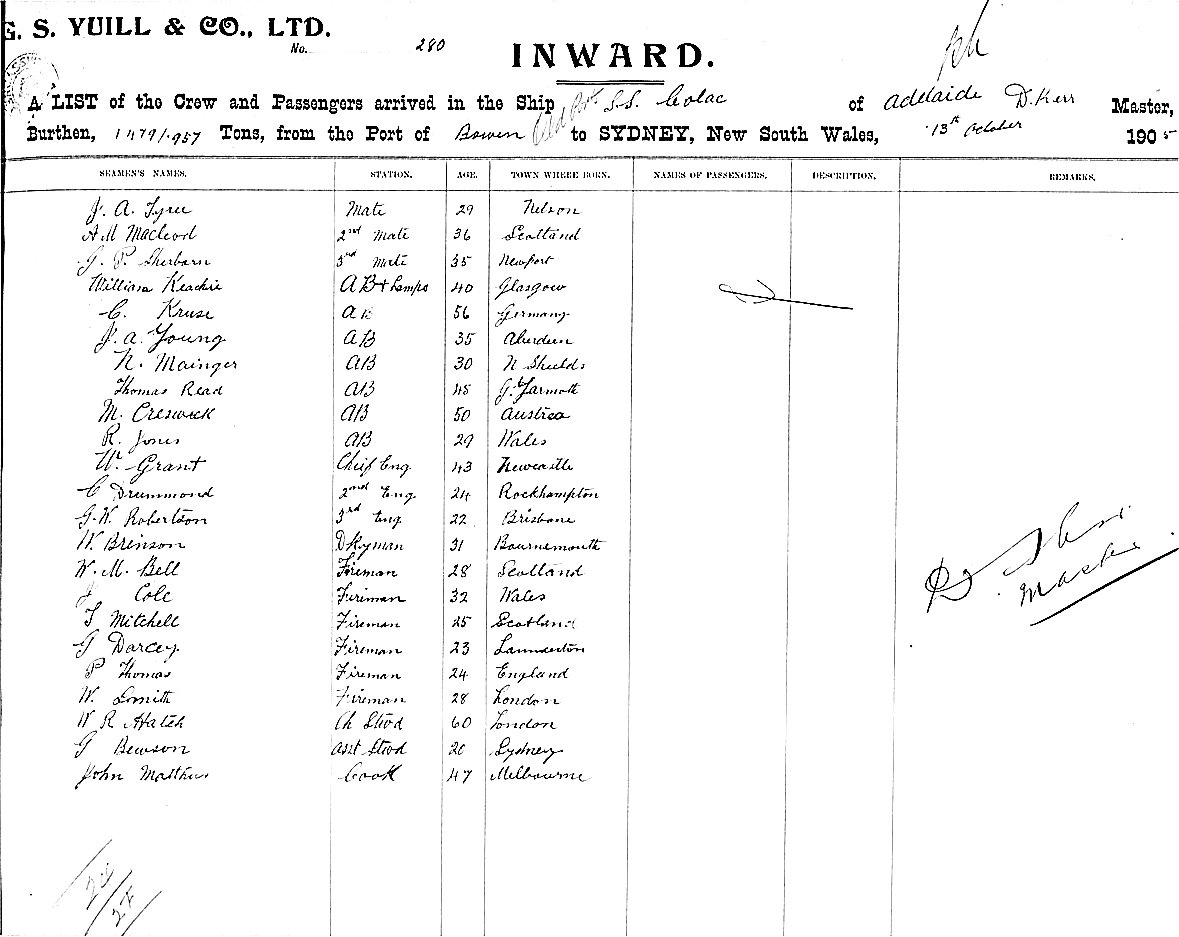 G. S. YUILL & CO., LTD.
No. 280
INWARD.
A LIST of the Crew and Passengers arrived in the Ship S.S. Colac of Adelaide D. Kerr Master,
Burthen, 1479/957 Tons, from the Port of Bowen to SYDNEY, New South Wales, 13th October 1905
SEAMEN'S NAMES. STATION. AGE. TOWN WHERE BORN. NAMES OF PASSENGERS. DESCRIPTION. REMARKS.
J. A. Tyree Mate 29 Nelson
A M Macleod 2nd Mate 36 Scotland
G. P. Sherbarn 3rd Mate 35 Newport
William Keachie AB + Lamps 40 Glasgow
C. Kruse AB 56 Germany
J. A. Young AB 35 Aberdeen
N. Mainger AB 30 N Shields
Thomas Read AB 48 G. Yarmoth
M. Creswick AB 50 Austrea
R. Jones AB 29 Wales
W. Grant Chief Eng 43 Newcastle
C Drummond 2nd Eng 24 Rockhampton
G. W. Robertson 3rd Eng 22 Brisbane
W. Brinson Dkyman 31 Bournemouth
W. M. Bell Fireman 28 Scotland
J Cole Fireman 32 Wales
T Mitchell Fireman 25 Scotland
G Darcey Fireman 23 Launceston
P Thomas Fireman 24 England
W. Smith Fireman 28 London
W R Hatch Ch Stwd 60 London
G Bewson Asst Stwd 20 Sydney
John Matthews Cook 47 Melbourne
D. Kerr
Master